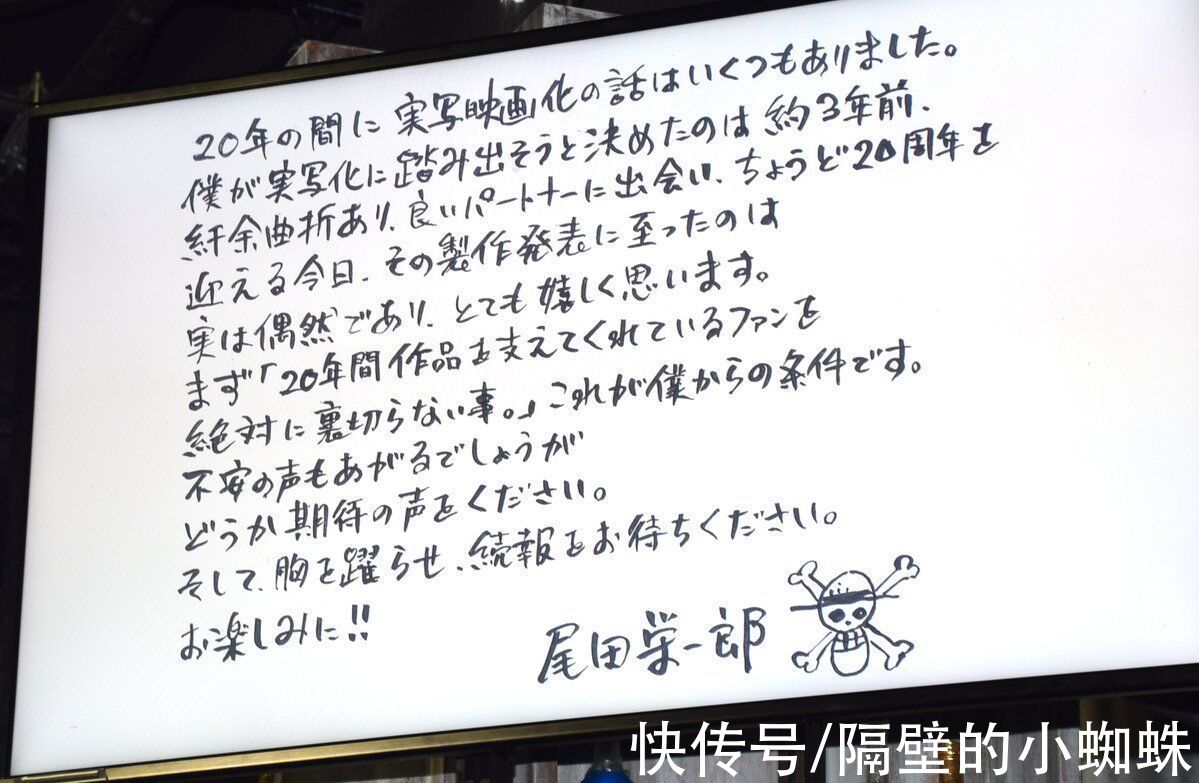 20年の間に 実写映画化の話はいくつもありました。
僕が実写化に踏み出そうと決めたのは 約3年前、
紆余曲折あり、良いパートナーに出会い、ちょうど20周年を
迎える今日、その製作発表に至ったのは
実は偶然であり、とても嬉しく思います。
まず「20年間作品を支えてくれているファンを
絶対に裏切らない事。」これが僕からの条件です。
不安の声もあがるでしょうが
どうか期待の声をください。
そして、胸を躍らせ、続報をお待ちください。
お楽しみに!!
尾田栄一郎
快传号/隔壁的小蜘蛛